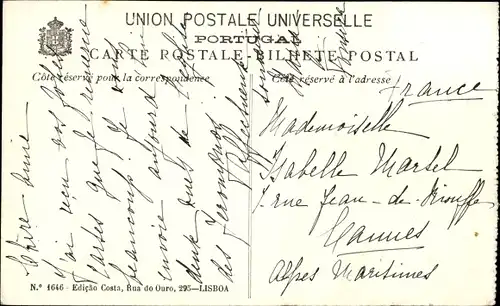 UNION POSTALE UNIVERSELLE
PORTUGAL
CARTE POSTALE-BILHETE POSTAL
Côté réservé pour la correspondance
Côté réservé à l'adresse
Chère amie
J'ai reçu vos jolies
cartes que je
beaucoup! Je vous
envoie aujourd'hui
deux vues de l'église
des Jeronimos
Affectueux
France
Mademoiselle
Isabelle Martel
rue Jean-de-Riouffe
Cannes
Alpes Maritimes
N.º 1646 - Edição Costa, Rua do Ouro, 295-LISBOA